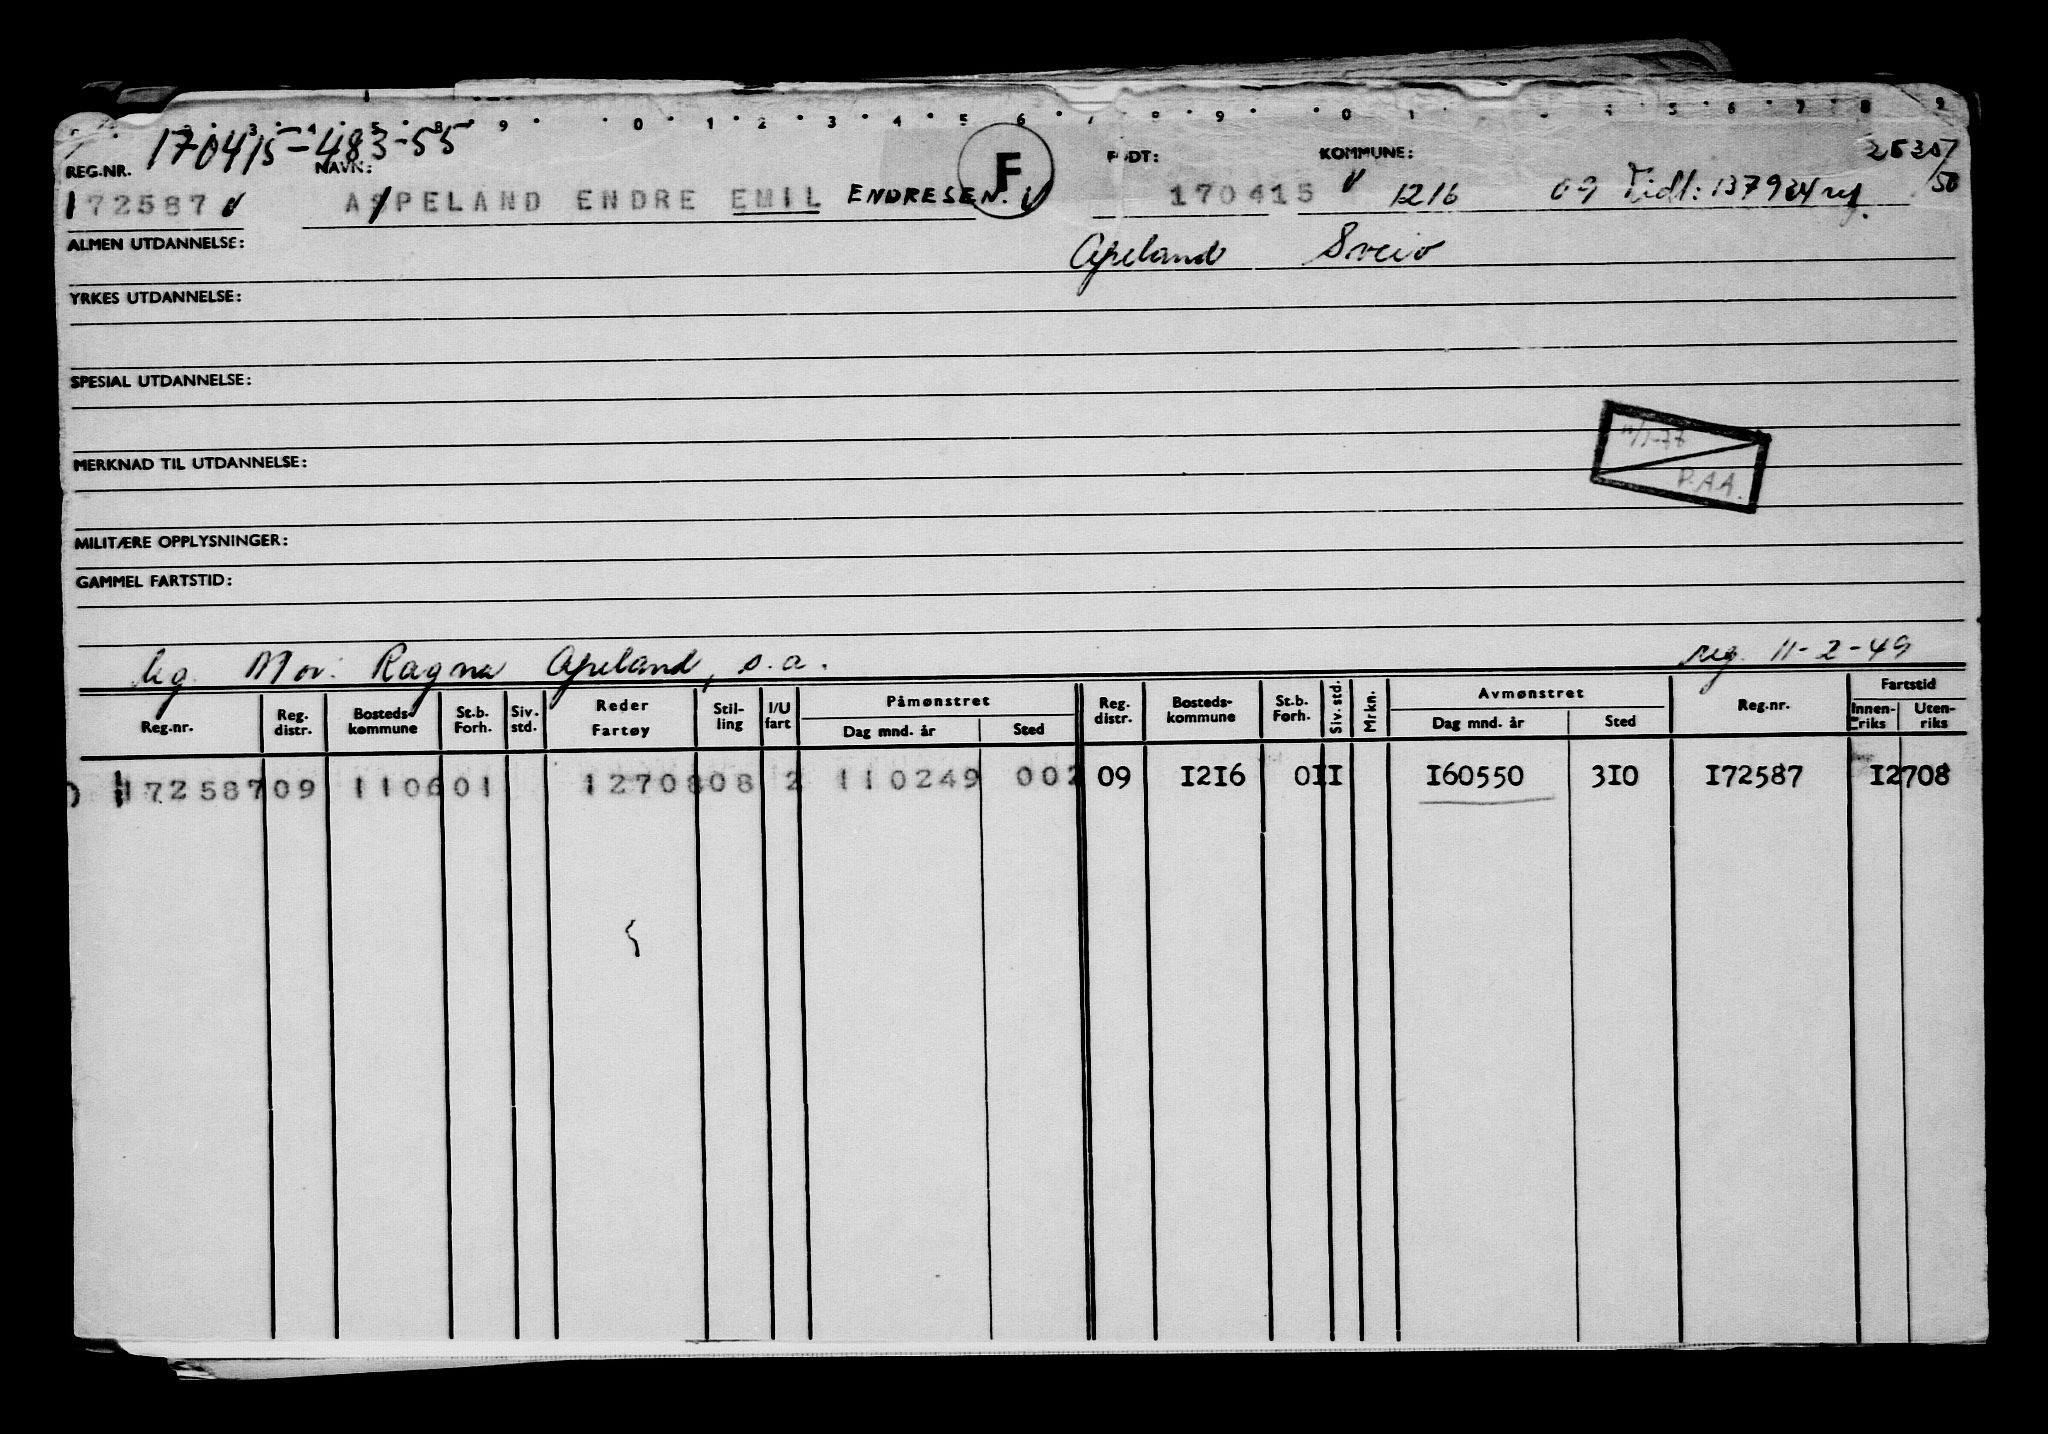 2 3 4 5 8 9 0 1 2 3 4 5 6 7 8 9 0 1 4 5 6 7 8 9
170415-483-55
REG.NR. NAVN: F FØDT: KOMMUNE: 25357/50
172587 ASPELAND ENDRE EMIL ENDRESEN. 170415 1216 09 Tidl: 137934
ALMEN UTDANNELSE: Apeland Sveio
YRKES UTDANNELSE:
SPESIAL UTDANNELSE:
11/1-77
MERKNAD TIL UTDANNELSE: P.A.A.
MILITÆRE OPPLYSNINGER:
GAMMEL FARTSTID:
leg. Mor: Ragna Apeland, s.a. reg. 11-2-49
Reg.nr. Reg. distr. Bosteds- kommune St.b. Forh. Siv. std. Reder Fartøy Stil- ling I/U fart Påmønstret Dag mnd. år Sted Reg. distr. Bosteds- kommune St.b. Forh. Siv. std. Mrkn. Avmønstret Dag mnd. år Sted Reg.nr. Fartstid Innen- riks Uten- riks
172587 09 1106 01 12708 08 2 110249 002 09 1216 011 160550 310 172587 12708